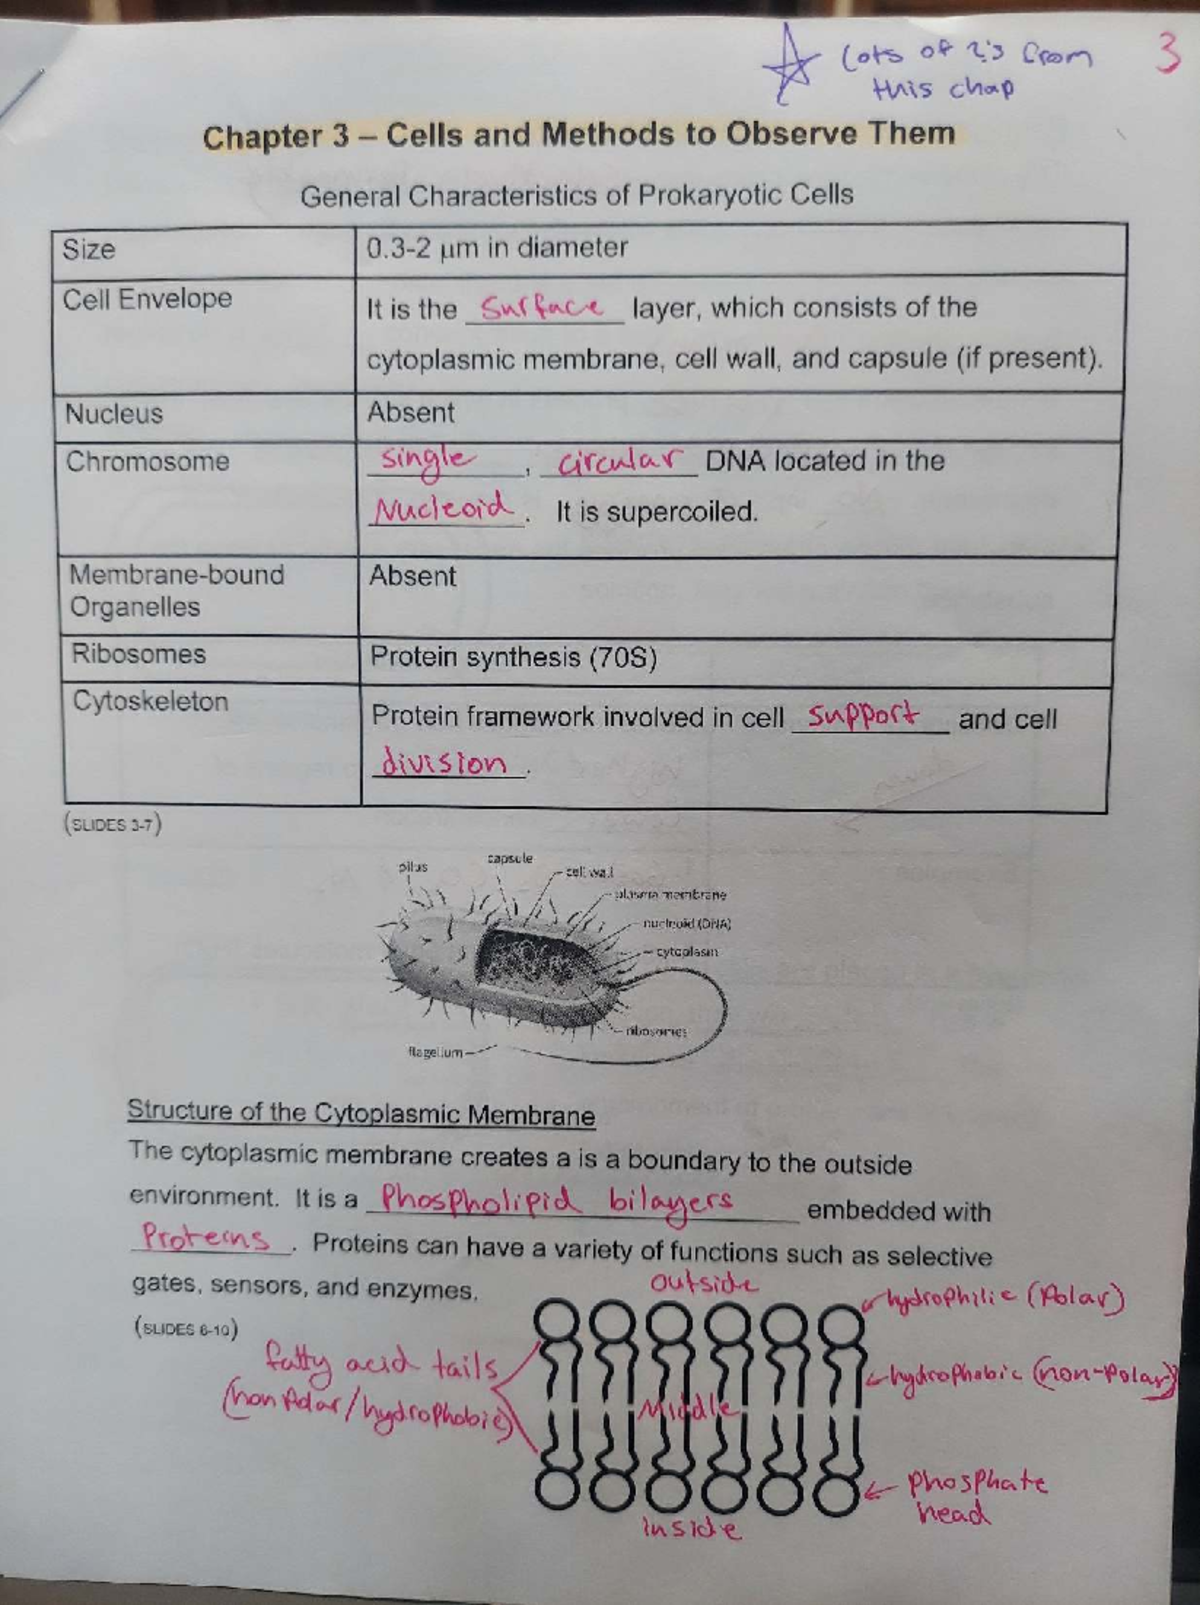 Lots of ?'s from
this chap
3
Chapter 3 – Cells and Methods to Observe Them
General Characteristics of Prokaryotic Cells
Size
0.3-2 µm in diameter
Cell Envelope
It is the surface layer, which consists of the
cytoplasmic membrane, cell wall, and capsule (if present).
Nucleus
Absent
Chromosome
single, circular DNA located in the
Nucleoid. It is supercoiled.
Membrane-bound
Organelles
Absent
Ribosomes
Protein synthesis (70S)
Cytoskeleton
Protein framework involved in cell support and cell
division.
(SLIDES 3-7)
pilus
capsule
cell wall
plasma membrane
nucleoid (DNA)
cytoplasm
ribosomes
flagellum
Structure of the Cytoplasmic Membrane
The cytoplasmic membrane creates a is a boundary to the outside
environment. It is a Phospholipid bilayers embedded with
Proteins. Proteins can have a variety of functions such as selective
gates, sensors, and enzymes.
(SLIDES 6-10)
outside
hydrophilic (Polar)
fatty acid tails
(non Polar/hydrophobic)
hydrophobic (non-Polar)
Middle
phosphate
head
inside